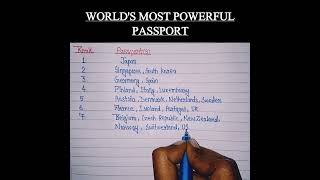 WORLD'S MOST POWERFUL
PASSPORT
Rank Passport(s)
1 Japan
2 Singapore, South Korea
3 Germany, Spain
4 Finland, Italy, Luxembourg
5 Austria, Denmark, Netherlands, Sweden
6 France, Ireland, Portugal, UK
7 Belgium, Czech Republic, New Zealand,
Norway, Switzerland, US